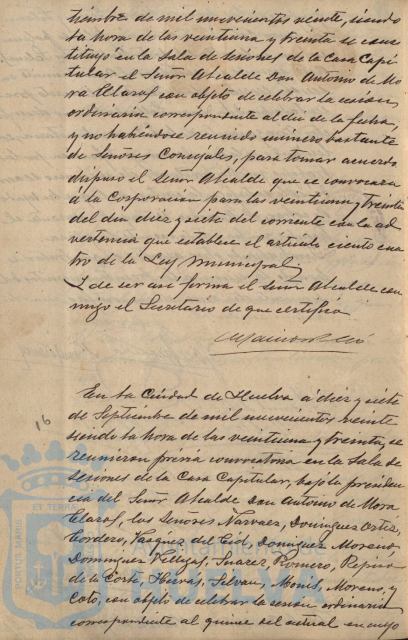 tiembre de mil novecientos veinte, siendo
la hora de las veintiuna y treinta se cons
tituyó en la Sala de Sesiones de la Casa Capi
tular el Señor Alcalde Don Antonio de Mo
ra Claros con objeto de celebrar la sesion
ordinaria correspondiente al dia de la fecha,
y no habiéndose reunido número bastante
de Señores Concejales, para tomar acuerdo
dispuso el Señor Alcalde que se convocara
á la Corporacion para las veintiuna y treinta
del dia diez y siete del corriente con la ad
vertencia que establece el artículo ciento cua
tro de la Ley Municipal.
Y de ser así firma el Señor Alcalde con
migo el Secretario de que certifico
En la Ciudad de Huelva á diez y siete
16
de Septiembre de mil novecientos veinte
siendo la hora de las veintiuna y treinta, se
reunieron prévia convocatoria en la Sala de
Sesiones de la Casa Capitular, bajo la presiden
cia del Señor Alcalde Don Antonio de Mora
Claros, los Señores Narvaez, Dominguez Ortiz,
Cordero, Vazquez del Cid, Dominguez Moreno,
Dominguez Suarez Romero,
de la Corte, Hervás, Silvan, Monís, Moreno, y
Coto, con objeto de celebrar la sesión ordinaria
correspondiente al quince del actual en cuyo
ET TERRAE
PORTUS MARIS